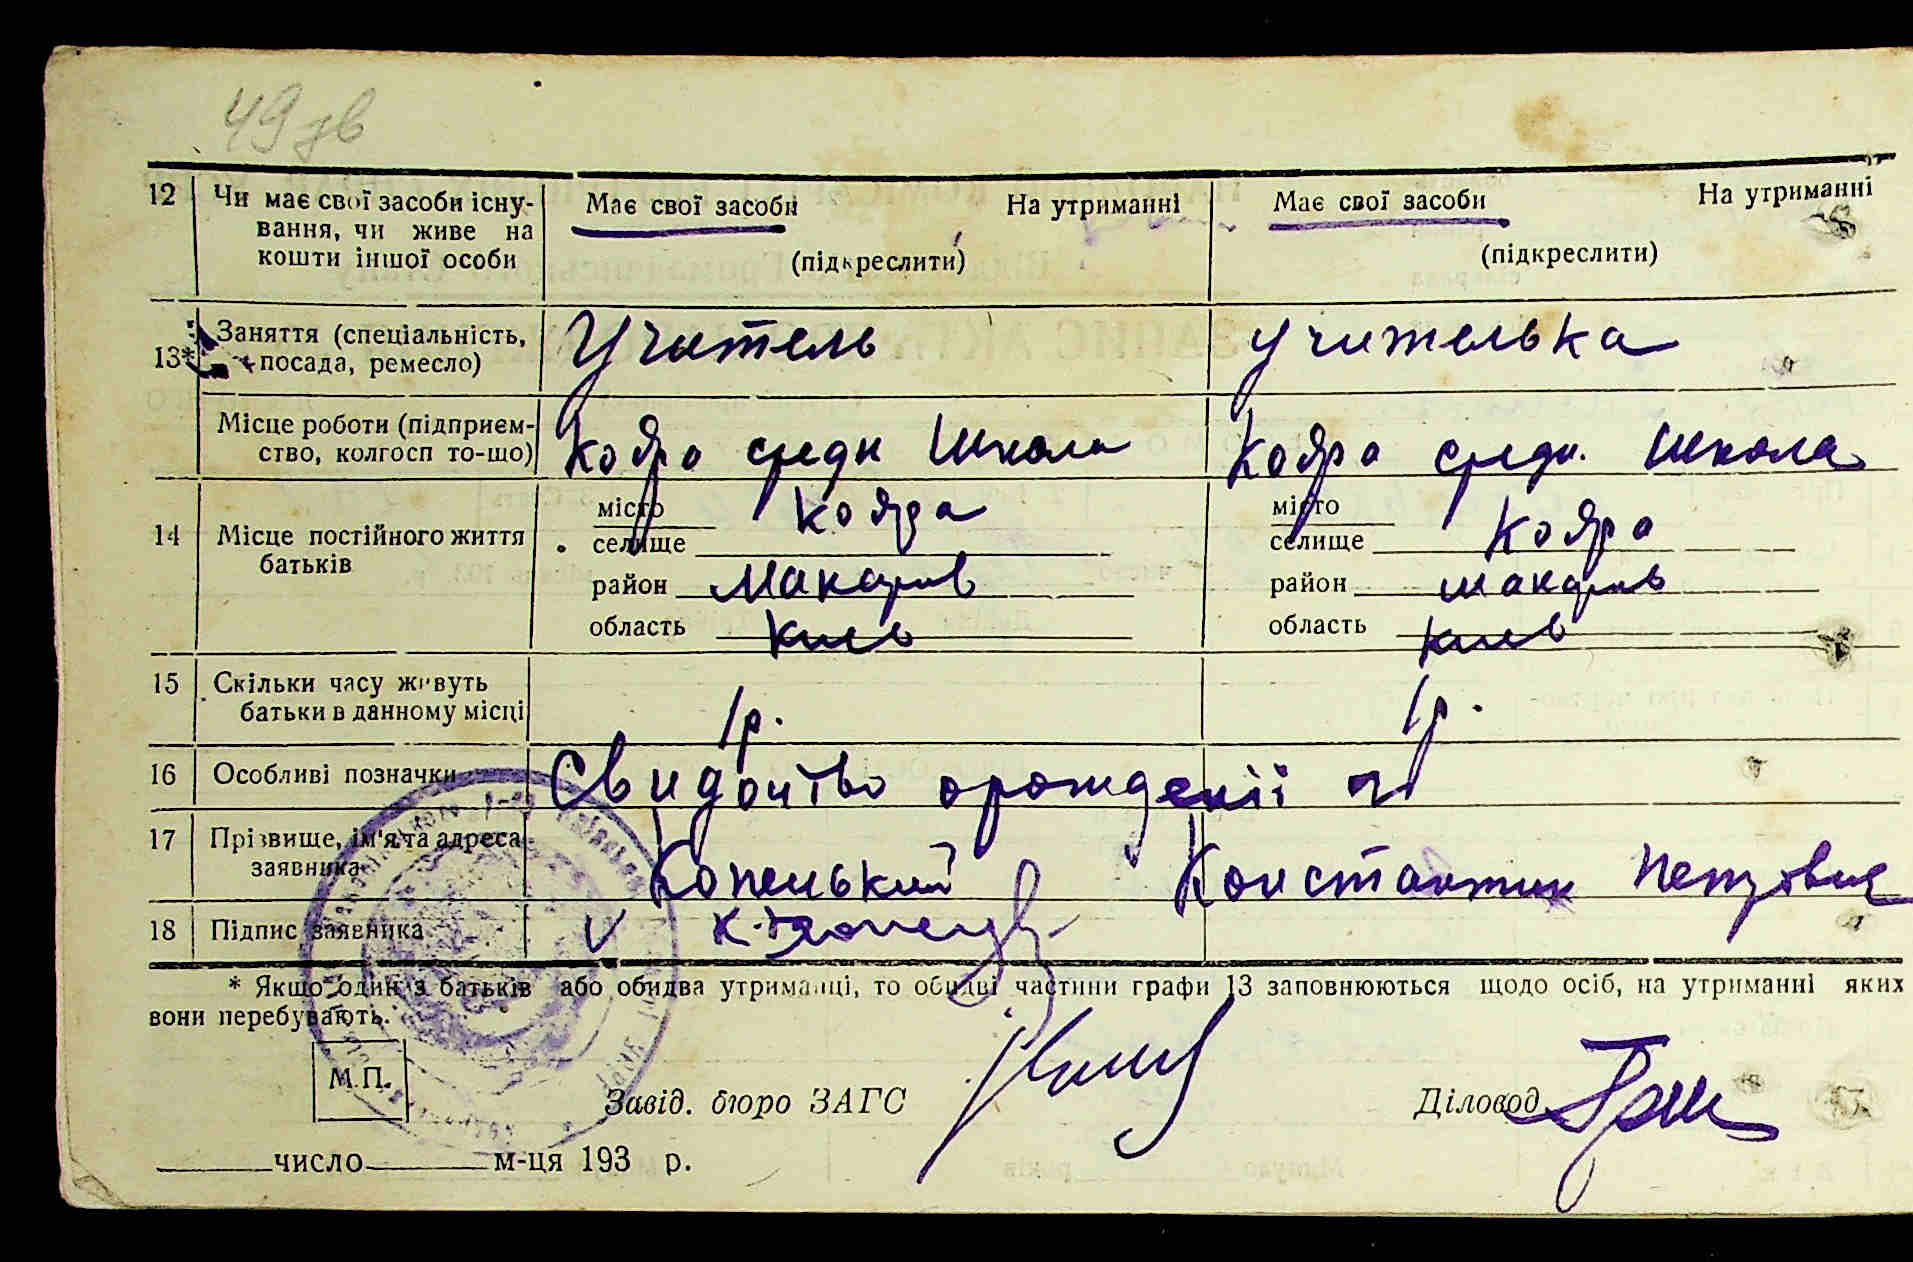 49 зв
12 Чи має свої засоби існу- Має свої засоби На утриманні Має свої засоби На утриманні
вання, чи живе на
кошти іншої особи (підкреслити) (підкреслити)
13* Заняття (спеціальність, Учитель учителька
посада, ремесло)
Місце роботи (підприєм- Кояро средн Школа Кояро средн. Школа
ство, колгосп то-що)
14 Місце постійного життя місто Кояра місто Кояро
батьків селище селище
район Макаров район Макаров
область Киев область Киев
15 Скільки часу живуть 1р. 1р.
батьки в данному місці
16 Особливі позначки Свидоцтво орождении
17 Прізвище, ім'я та адреса Константин Петрович
заявника
18 Підпис заявника V
* Якщо один з батьків або обидва утриманці, то обидві частини графи 13 заповнюються щодо осіб, на утриманні яких
вони перебувають.
М.П.
Завід. бюро ЗАГС Діловод
число м-ця 193 р.